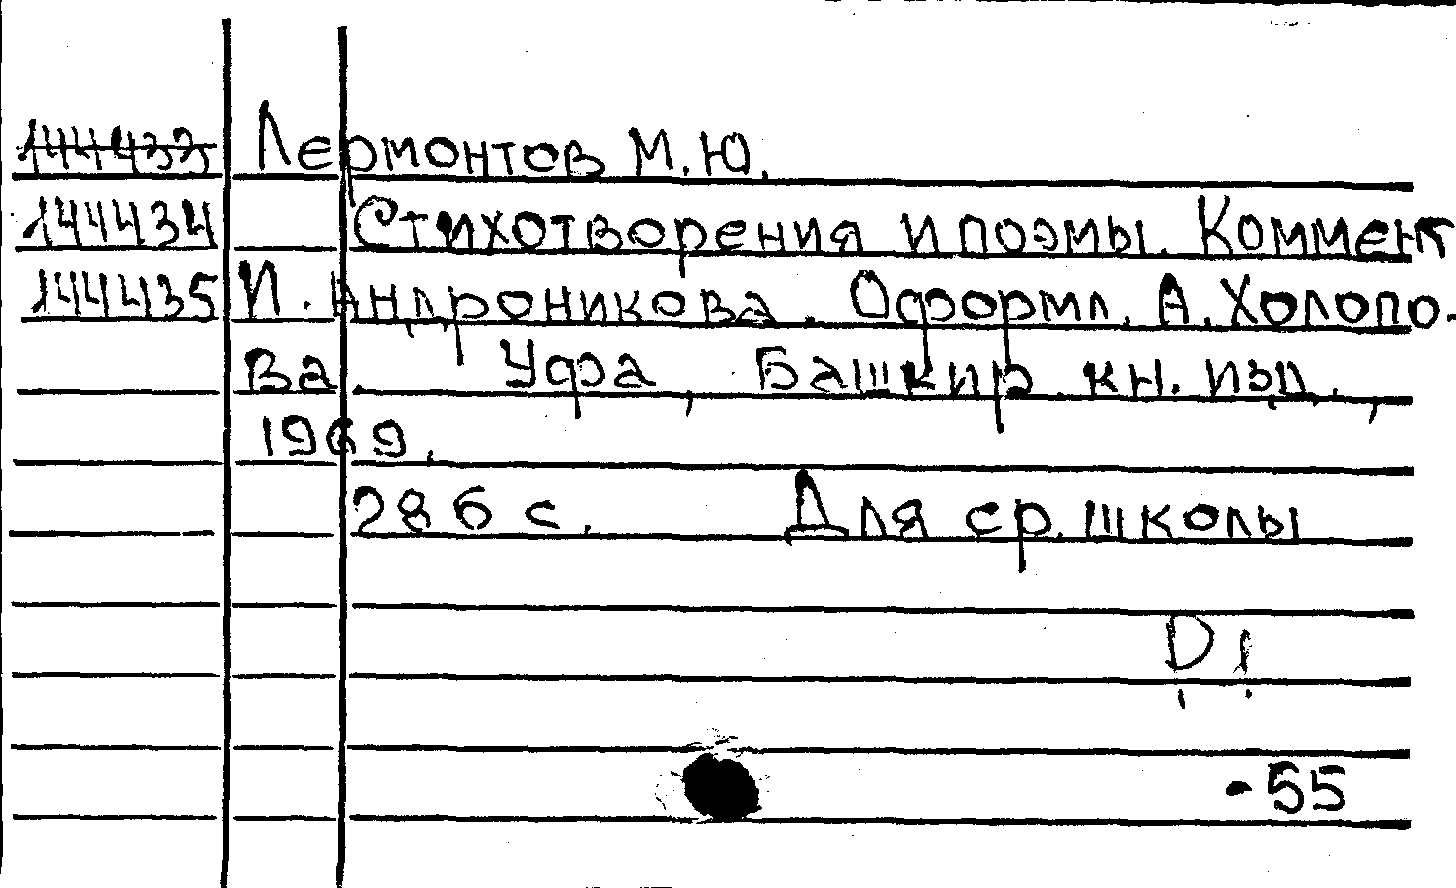 144433 Лермонтов М.Ю.
144434 Стихотворения и поэмы. Коммент
144435 И. Андроникова. Оформл. А. Холопо-
ва. Уфа, Башкир. кн. изд.,
1969.
286 с. Для ср. школы
Р1
-55